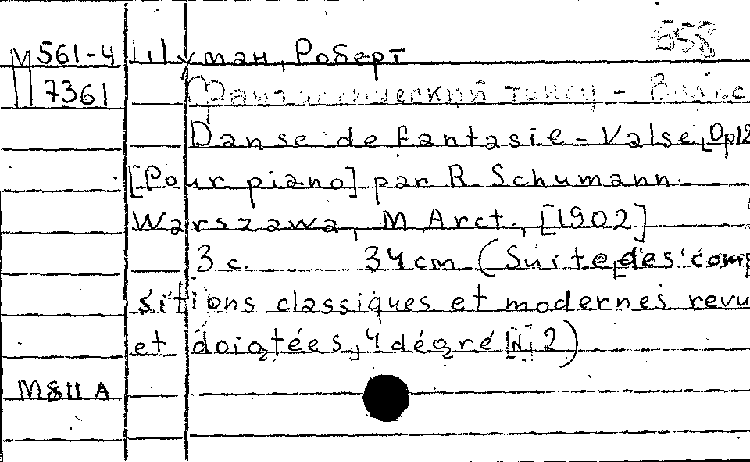 М 561-4 Шуман, Роберт 558
П 7361 Фантастический танец - Вальс
Danse de Fantasie - Valse, Op12
[Pour piano] par R. Schumann.
Warszawa, M. Arct., [1902]
3 c. 34 cm (Suite des comp
sitions classiques et modernes revu
et doigtées, 4 dégré N 2)
M811A